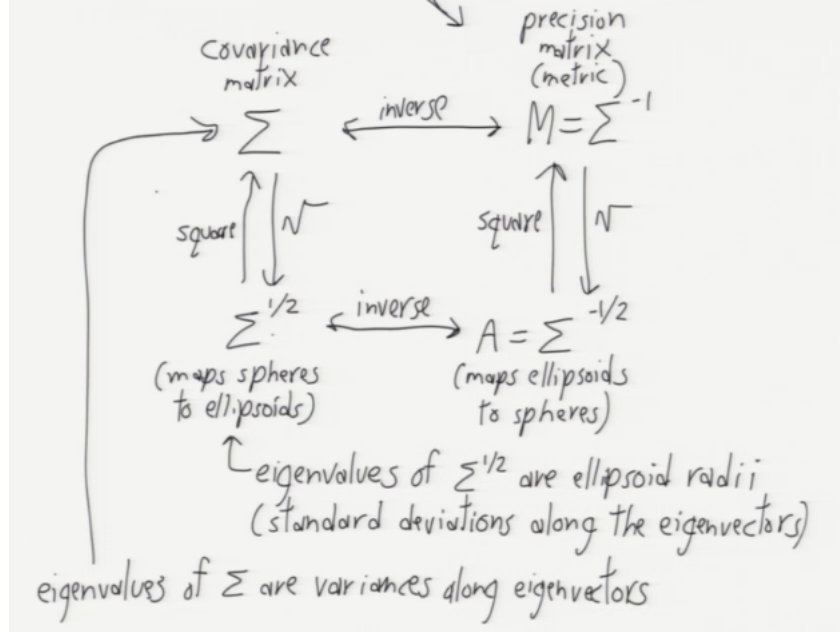 covariance
matrix
Σ
inverse
precision
matrix
(metric)
M = Σ⁻¹
square
√
square
√
Σ^1/2
inverse
A = Σ^-1/2
(maps spheres
to ellipsoids)
(maps ellipsoids
to spheres)
eigenvalues of Σ^1/2 are ellipsoid radii
(standard deviations along the eigenvectors)
eigenvalues of Σ are variances along eigenvectors